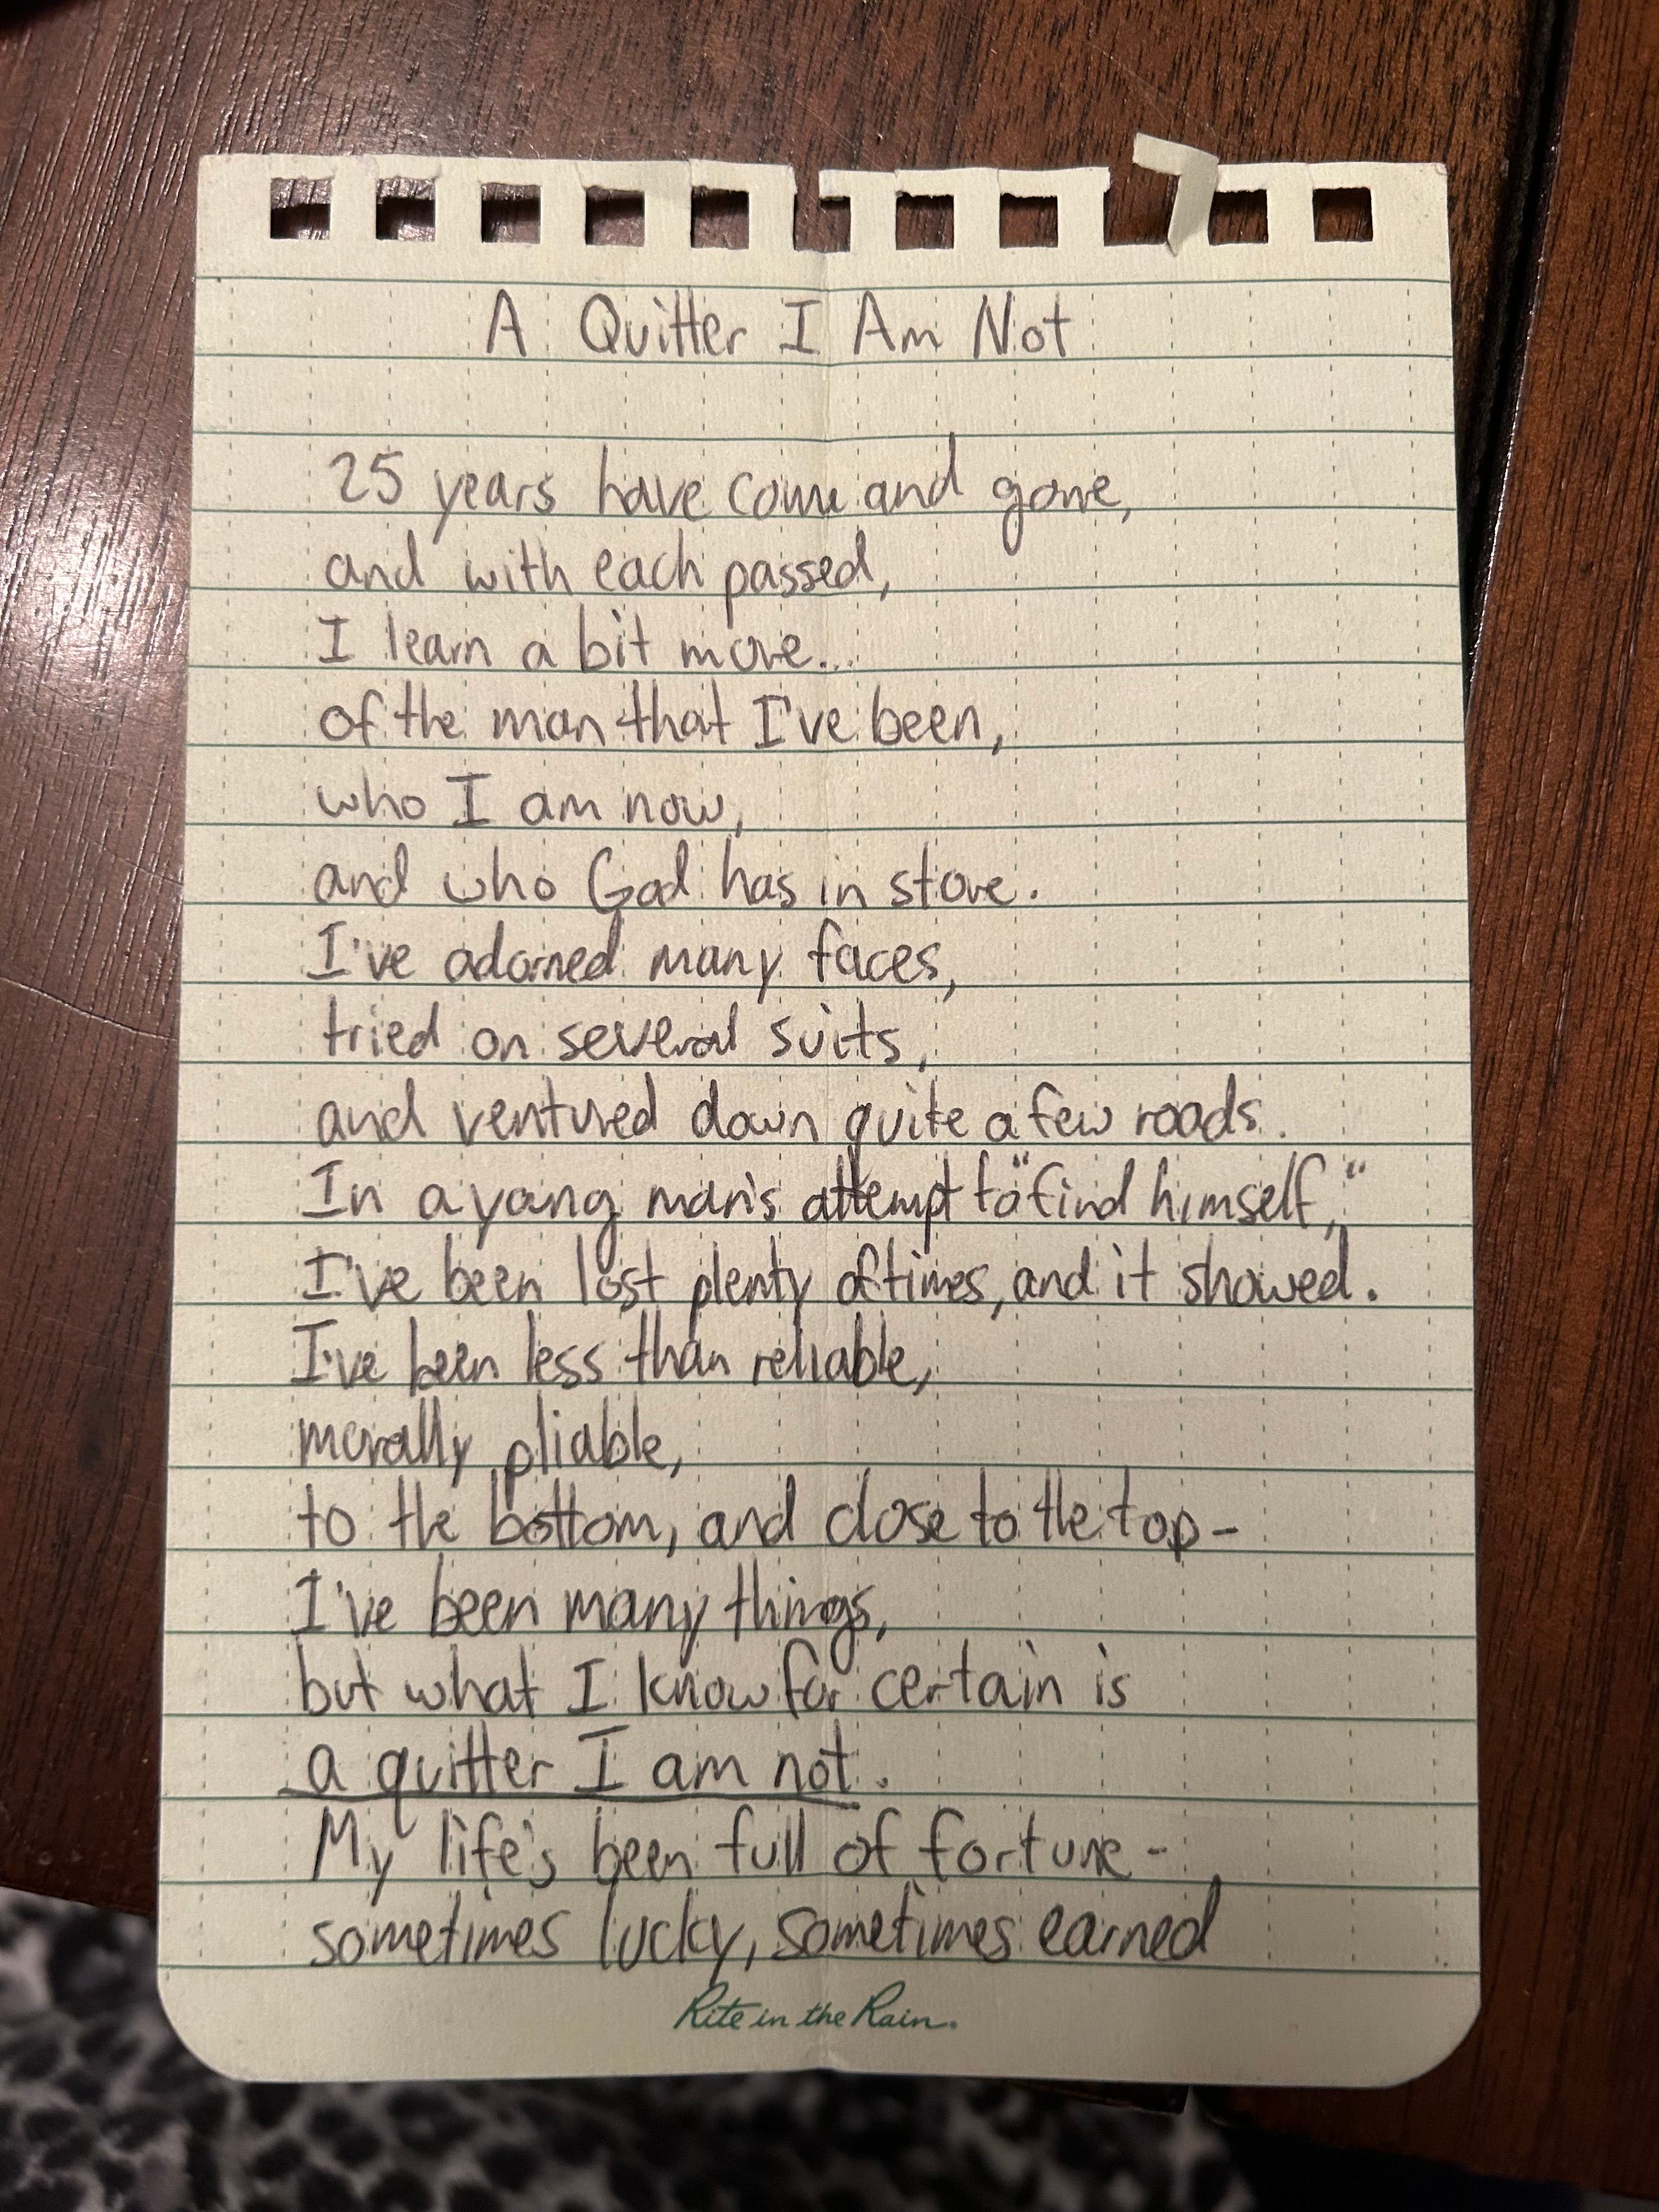 A Quitter I Am Not
25 years have come and gone,
and with each passed,
I learn a bit more...
of the man that I've been,
who I am now,
and who God has in store.
I've adorned many faces,
tried on several suits,
and ventured down quite a few roads.
In a young man's attempt to "find himself,"
I've been lost plenty of times, and it showed.
I've been less than reliable,
morally pliable,
to the bottom, and close to the top-
I've been many things,
but what I know for certain is
a quitter I am not.
My life's been full of fortune-
sometimes lucky, sometimes earned
Rite in the Rain.